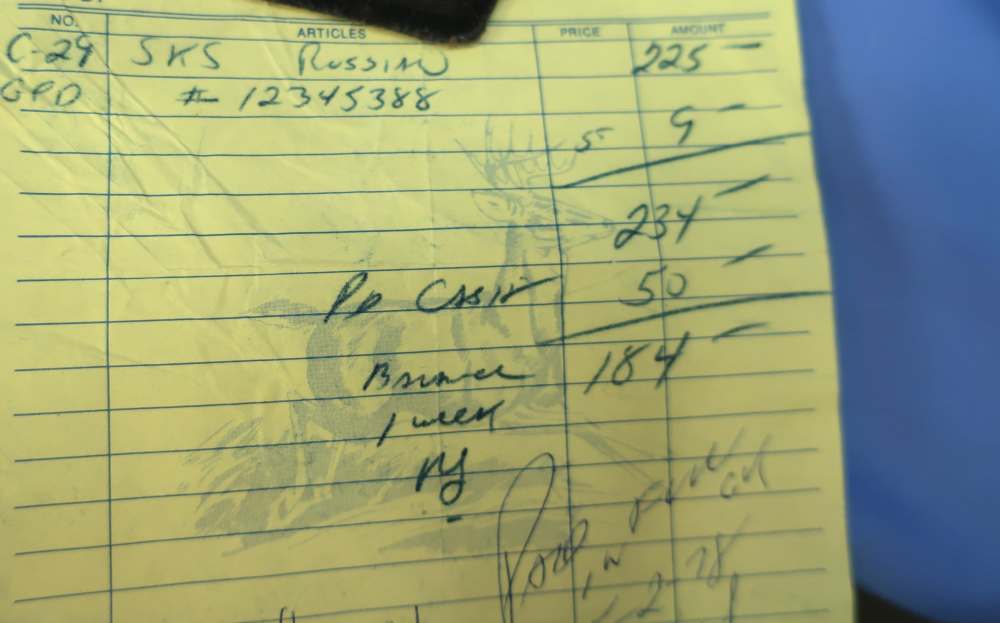 NO. ARTICLES PRICE AMOUNT
C-29 SKS RUSSIAN 225 –
GPD # 12345388
5 9 –
234 –
PD CASH 50 –
BALANCE 184 –
1 week
PAID IN FULL